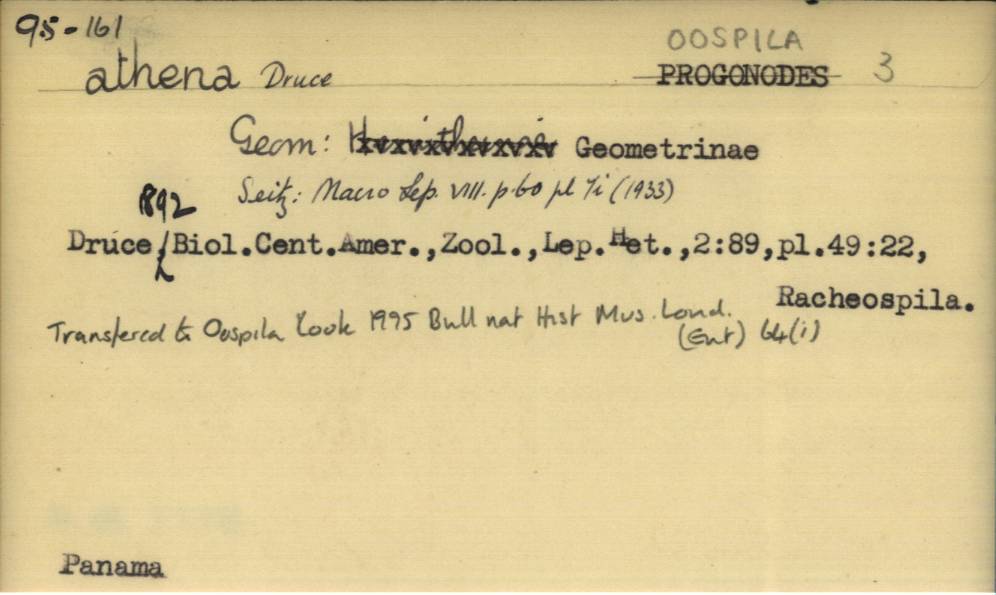 95-161
OOSPILA
athena Druce PROGONODES 3
Geom: Geometrinae
Seitz: Macro Lep. VIII. p.60 pl 7i (1933)
1892
Druce, Biol.Cent.Amer.,Zool.,Lep.Het.,2:89,pl.49:22,
Racheospila.
Transfered to Oospila Cook 1995 Bull nat Hist Mus. Lond.
(Ent) 64(i)
Panama